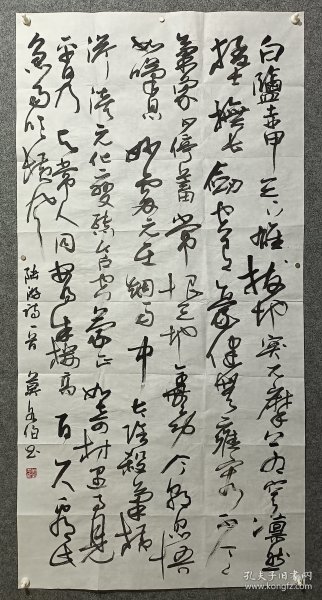 白鹽赤甲天下雄拔地突兀摩蒼穹凛然
猛士撫長劍空有豪健無雍容不令
氣象少渟蓄常恨天地無全功今朝忽悟
始嘆息妙處元在烟雨中太陰殺氣橫
慘淡元化變態含空蒙正如奇材遇事見
平日乃與常人同安得朱樓高百尺看此
疾雨吹橫風
陸游詩一首 伯書
孔夫子旧书网